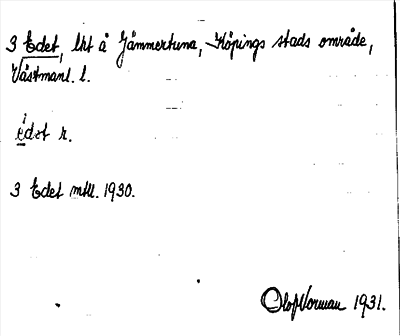 3 Edet, lht å Jämmertuna, Köpings stads område,
Västmanl. l.
i
edet r.
3 Edet mtll. 1930.
Olof Norman 1931.